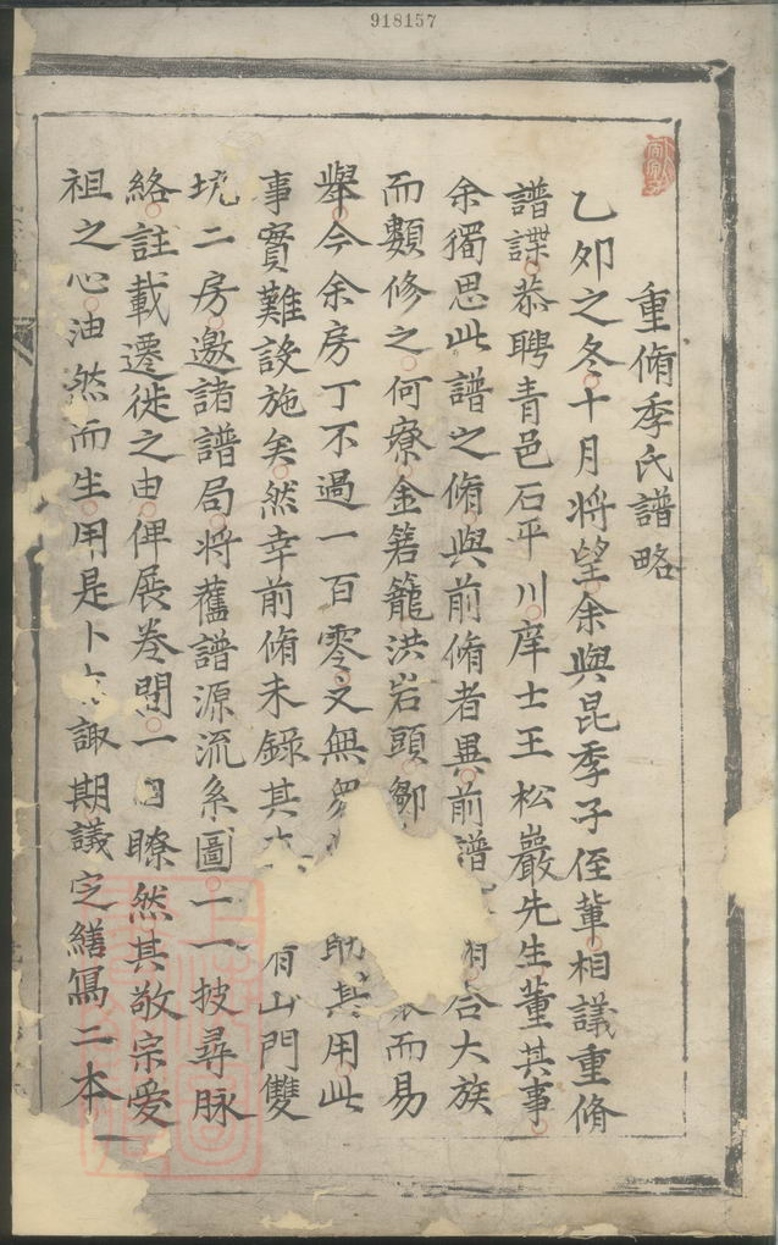 918157
重脩季氏譜略
乙夘之冬十月将望余與昆季子侄軰相議重脩
譜諜恭聘青邑石平川庠士王松巖先生董其事
余獨思此譜之脩與前脩者異前譜合大族
而數修之何寮金箬籠洪岩頭鄒而易
舉今余房丁不過一百零又無助其用此
事實難設施矣然幸前脩未錄其有山門雙
坑二房邀諸譜局将舊譜源流系圖一一披尋脉
絡註載遷徙之由俾展卷間一目瞭然其敬宗愛
祖之心油然而生用是卜諏期議定繕寫二本一